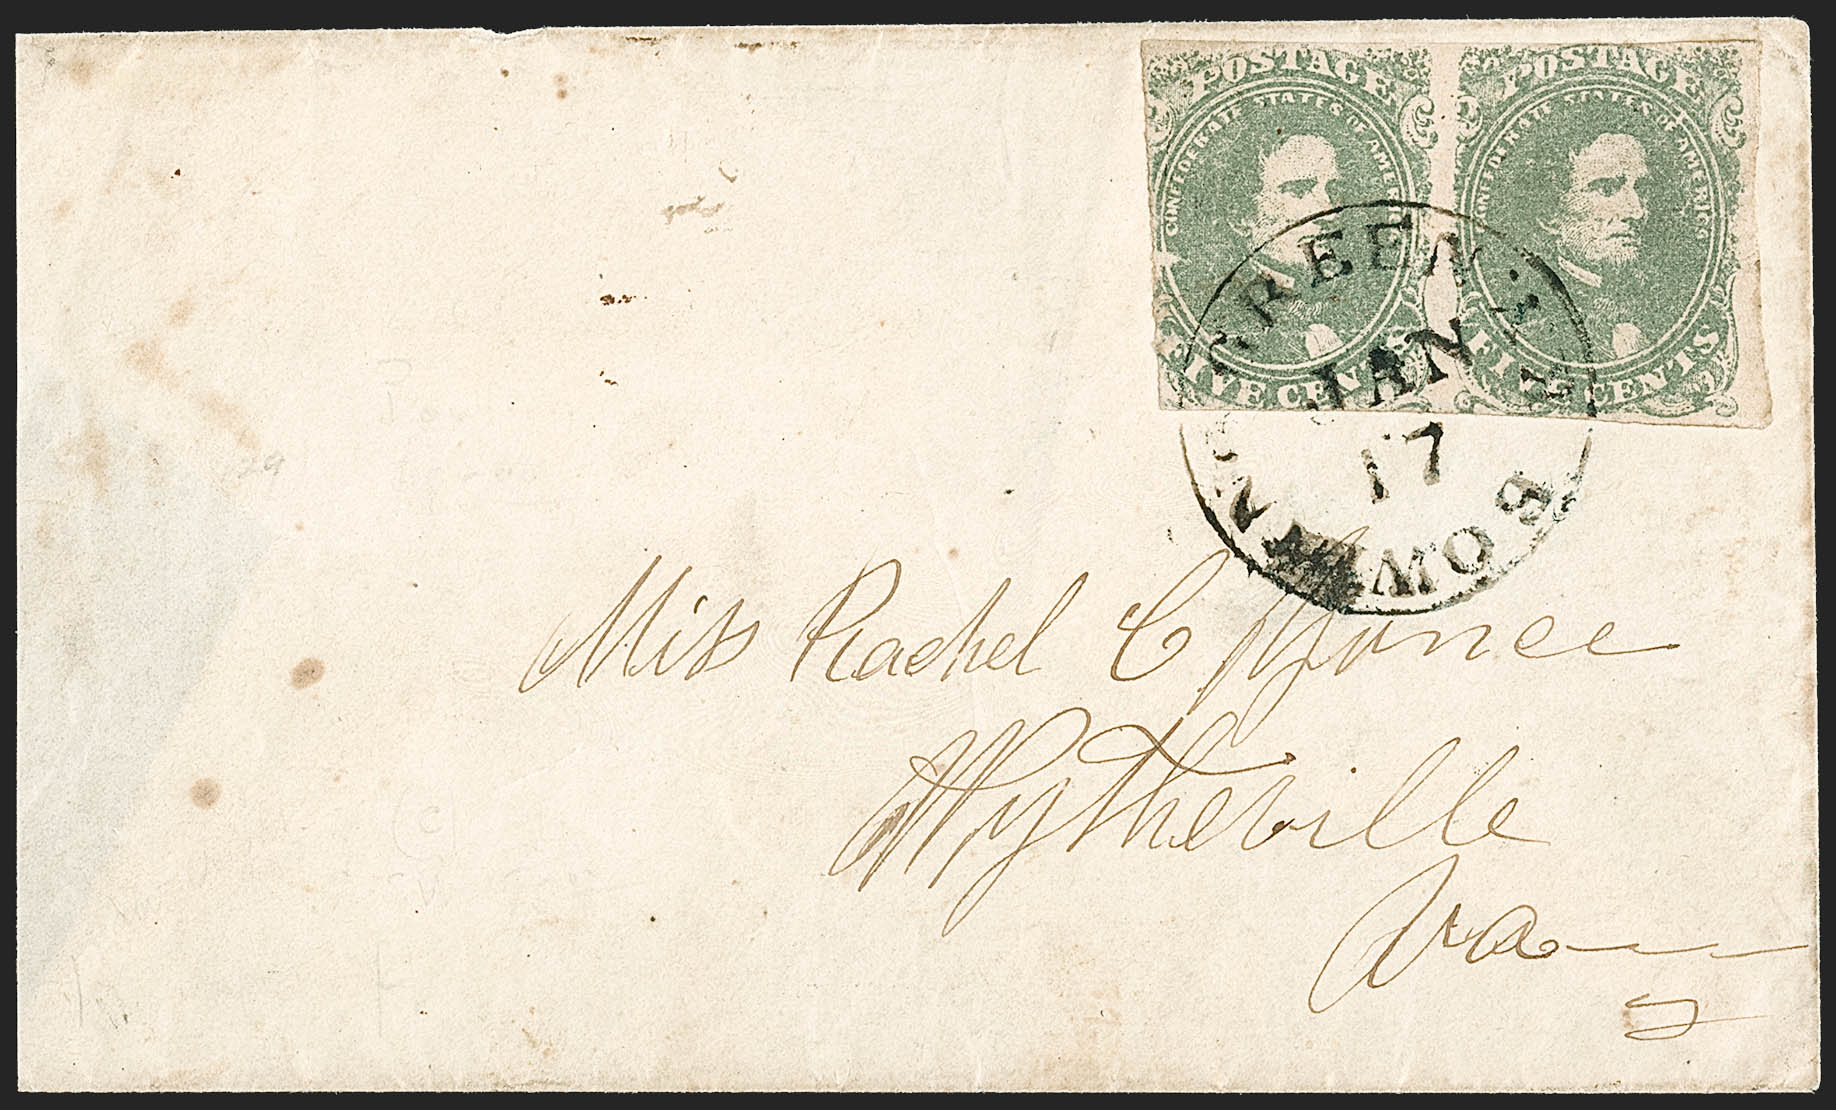 POSTAGE POSTAGE
CONFEDERATE STATES OF AMERICA CONFEDERATE STATES OF AMERICA
FIVE CENTS FIVE CENTS
BOWLING GREEN
JAN
17
Miss Rachel C
Wytheville
Va